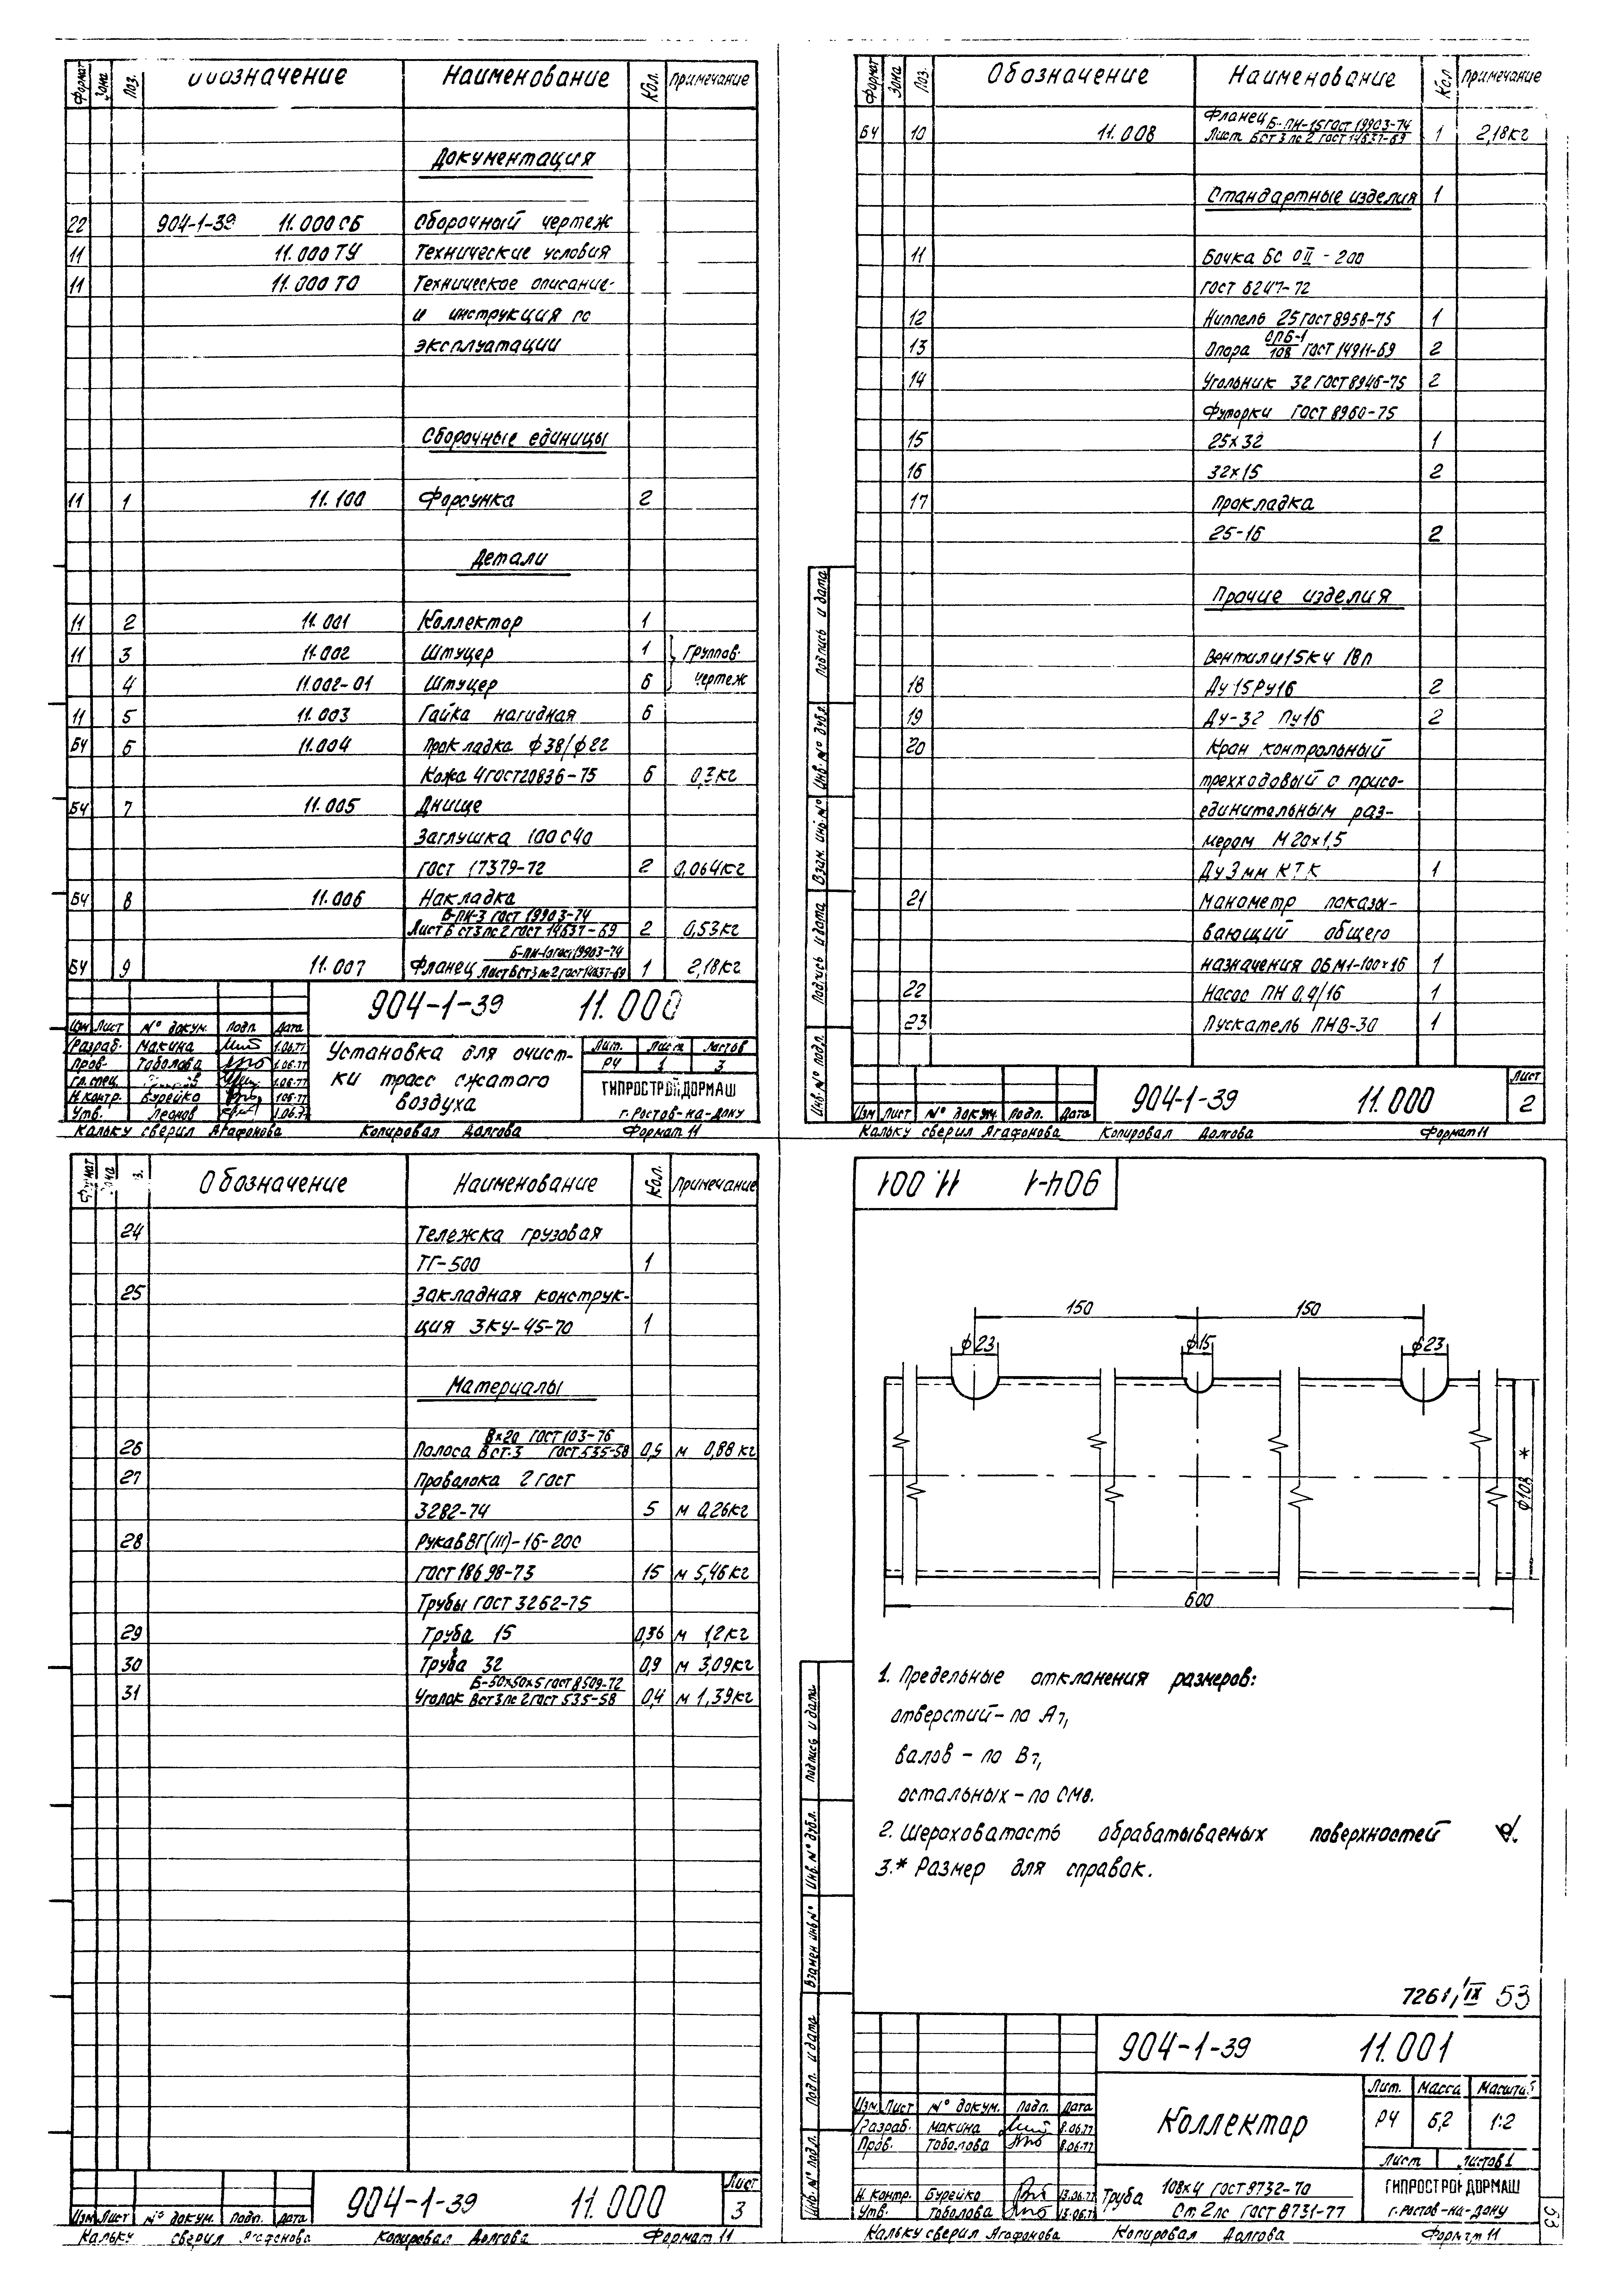 Формат Зона Поз. Обозначение Наименование Кол. Примечание
Документация
22 904-1-39 11.000 СБ Сборочный чертеж
11 11.000 ТУ Технические условия
11 11.000 ТО Техническое описание
и инструкция по
эксплуатации
Сборочные единицы
11 1 11.100 Форсунка 2
Детали
11 2 11.001 Коллектор 1
11 3 11.002 Штуцер 1 Группов.
4 11.002-01 Штуцер 6 чертеж
11 5 11.003 Гайка накидная 6
БЧ 6 11.004 Прокладка ф38/ф22
Кожа 4 ГОСТ 20836-75 6 0,3кг
БЧ 7 11.005 Днище
Заглушка 100С40
ГОСТ 17379-72 2 0,064кг
БЧ 8 11.006 Накладка
Б-ПН-3 ГОСТ 19903-74
Лист Б Ст3пс2 ГОСТ 14637-69 2 0,53кг
Б-ПН-10 ГОСТ 19903-74
БЧ 9 11.007 Фланец Лист БСт3пс2 ГОСТ 14637-69 1 2,18кг
904-1-39 11.000
Изм Лист № докум. Подп. Дата
Разраб. Макина 1.06.77
Пров. Тоболова 1.06.77
Гл. спец. 1.06.77
Н. контр. Бурейко 1.06.77
Утв. Леонов 1.06.77
Установка для очист-
ки трасс сжатого
воздуха
Лит. Лист Листов
РЧ 1 3
ГИПРОСТРОЙДОРМАШ
г. Ростов-на-Дону
Кальку сверил Агафонова Копировал Долгова Формат 11
Формат Зона Поз. Обозначение Наименование Кол Примечание
Фланец Б-ПН-15 ГОСТ 19903-74
БЧ 10 11.008 Лист БСт3пс2 ГОСТ 14637-69 1 2,18кг
Стандартные изделия 1
11 Бочка БС ОII - 200
ГОСТ 6247-72
12 Ниппель 25 ГОСТ 8958-75 1
ОПБ-1
13 Опора 108 ГОСТ 14911-69 2
14 Угольник 32 ГОСТ 8946-75 2
Футорки ГОСТ 8960-75
15 25х32 1
16 32х15 2
17 Прокладка
25-16 2
Прочие изделия
Вентили 15кч 18п
18 Ду 15 Ру16 2
19 Ду-32 Пу16 2
20 Кран контрольный
трехходовый с присо-
единительным раз-
мером М20х1,5
Ду3мм КТК 1
21 Манометр показы-
вающий общего
назначения ОБМ1-100х16 1
22 Насос ПН 0,4/16 1
23 Пускатель ПНВ-30 1
Подпись и дата
Инв. № дубл.
Взам. инв. №
Подпись и дата
Инв. № подл.
Изм Лист № докум. Подп. Дата
904-1-39 11.000
Лист
2
Кальку сверил Агафонова Копировал Долгова Формат 11
Обозначение Наименование Кол. Примечание
24 Тележка грузовая
ТГ-500 1
25 Закладная конструк-
ция ЗКЧ-45-70 1
Материалы
8х20 ГОСТ 103-76
26 Полоса В Ст.3 ГОСТ 535-58 0,5 м 0,88 кг
27 Проволока 2 ГОСТ
3282-74 5 м 0,26кг
28 Рукав ВГ(III)-16-200
ГОСТ 18698-73 15 м 5,46кг
Трубы ГОСТ 3262-75
29 Труба 15 0,36 м 1,2кг
30 Труба 32 0,9 м 3,09кг
Б-50х50х5 ГОСТ 8509-72
31 Уголок ВСт3пс2 ГОСТ 535-58 0,4 м 1,39кг
Изм Лист № докум. Подп. Дата
904-1-39 11.000
Лист
3
Кальку сверил Агафонова Копировал Долгова Формат 11
904-1 11.001
150 150
ф23 ф15 ф23
ф108 *
600
1. Предельные отклонения размеров:
отверстий-по А7,
валов - по В7,
остальных-по СМ8.
2. Шероховатость обрабатываемых поверхностей
3.* Размер для справок.
7261/IX 53
Подпись и дата
Инв. № дубл.
Взамен инв №
Подп. и дата
Инв. № подл.
904-1-39 11.001
Изм Лист № докум. Подп. Дата
Разраб. Макина 8.06.77
Пров. Тоболова 8.06.77
Н. контр. Бурейко 13.06.77
Утв. Тоболова 13.06.77
Коллектор
Лит. Масса Масштаб
РЧ 6,2 1:2
Лист Листов 1
Труба 108х4 ГОСТ 8732-70
Ст 2пс ГОСТ 8731-77
ГИПРОСТРОЙДОРМАШ
г. Ростов-на-Дону
Кальку сверил Агафонова Копировал Долгова Формат 11
53